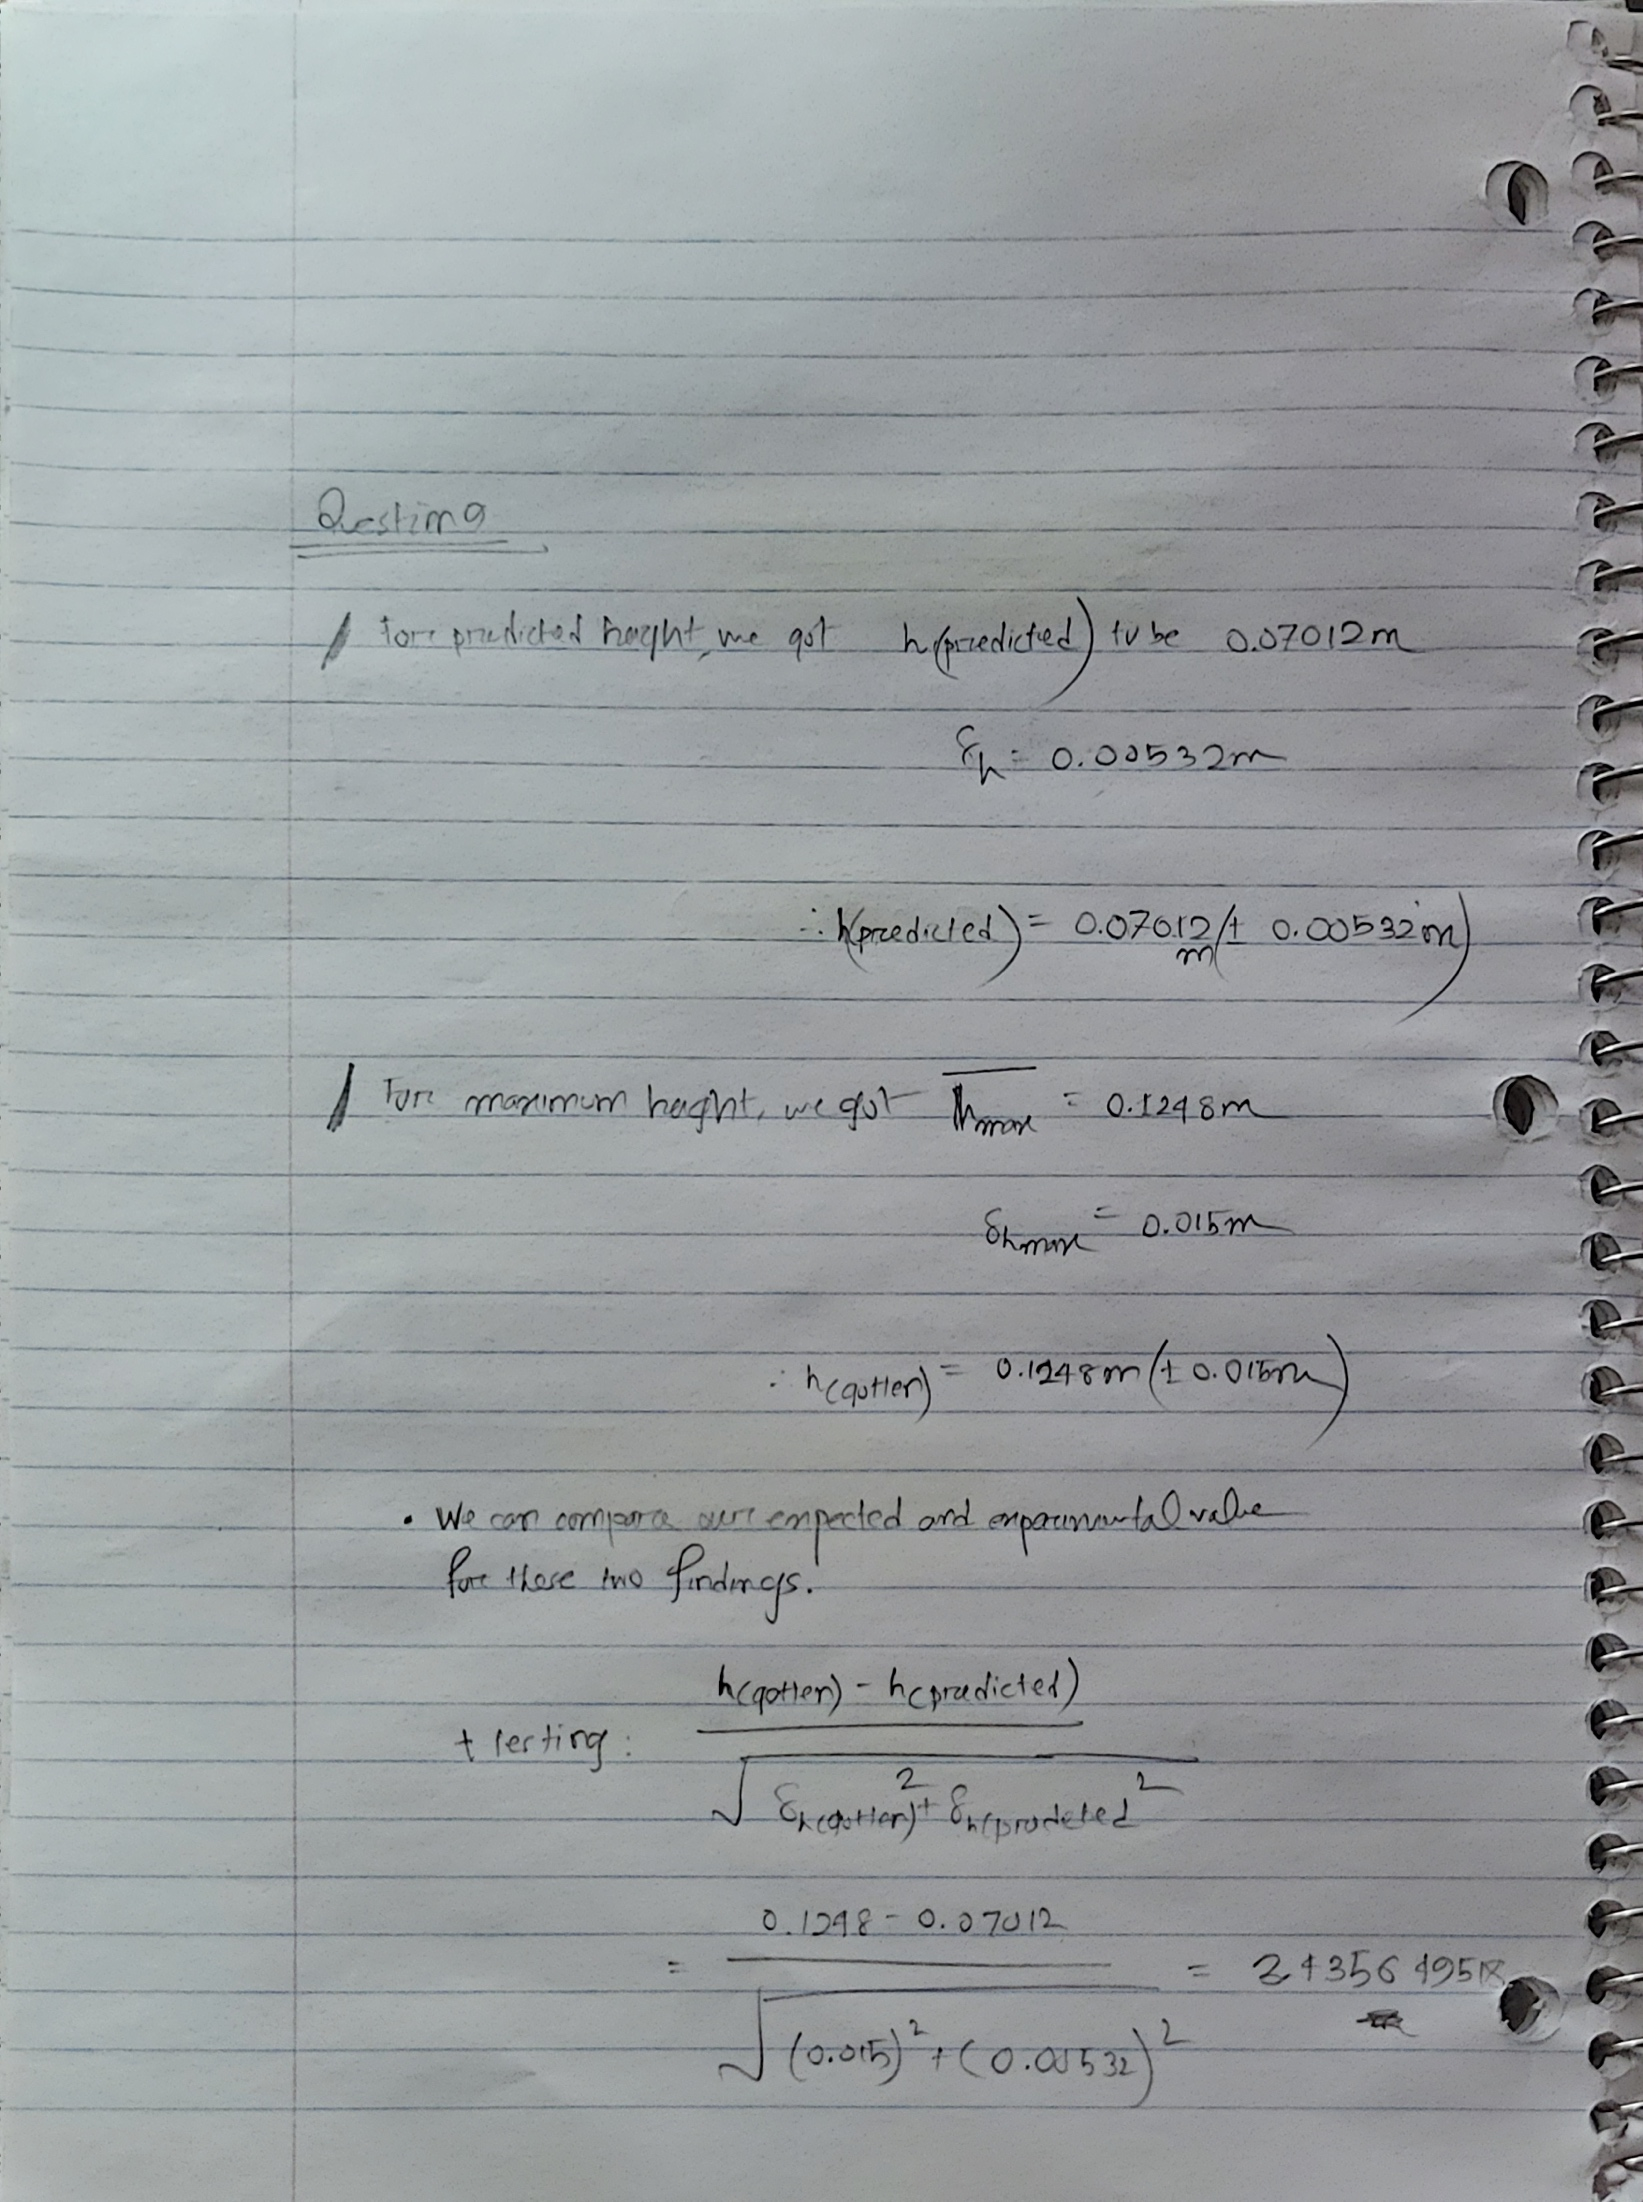 Question 9
For predicted height, we got h(predicted) to be 0.07012m
δh = 0.00532m
∴ h(predicted) = 0.07012m (± 0.00532m)
For maximum height, we got h̅max = 0.1248m
δhmax = 0.015m
∴ h(gotten) = 0.1248m (± 0.015m)
• We can compare our expected and experimental value
for these two findings.
h(gotten) - h(predicted)
t testing:
√ δh(gotten)² + δh(predicted²
0.1248 - 0.07012
= =
√ (0.015)² + (0.00532)²